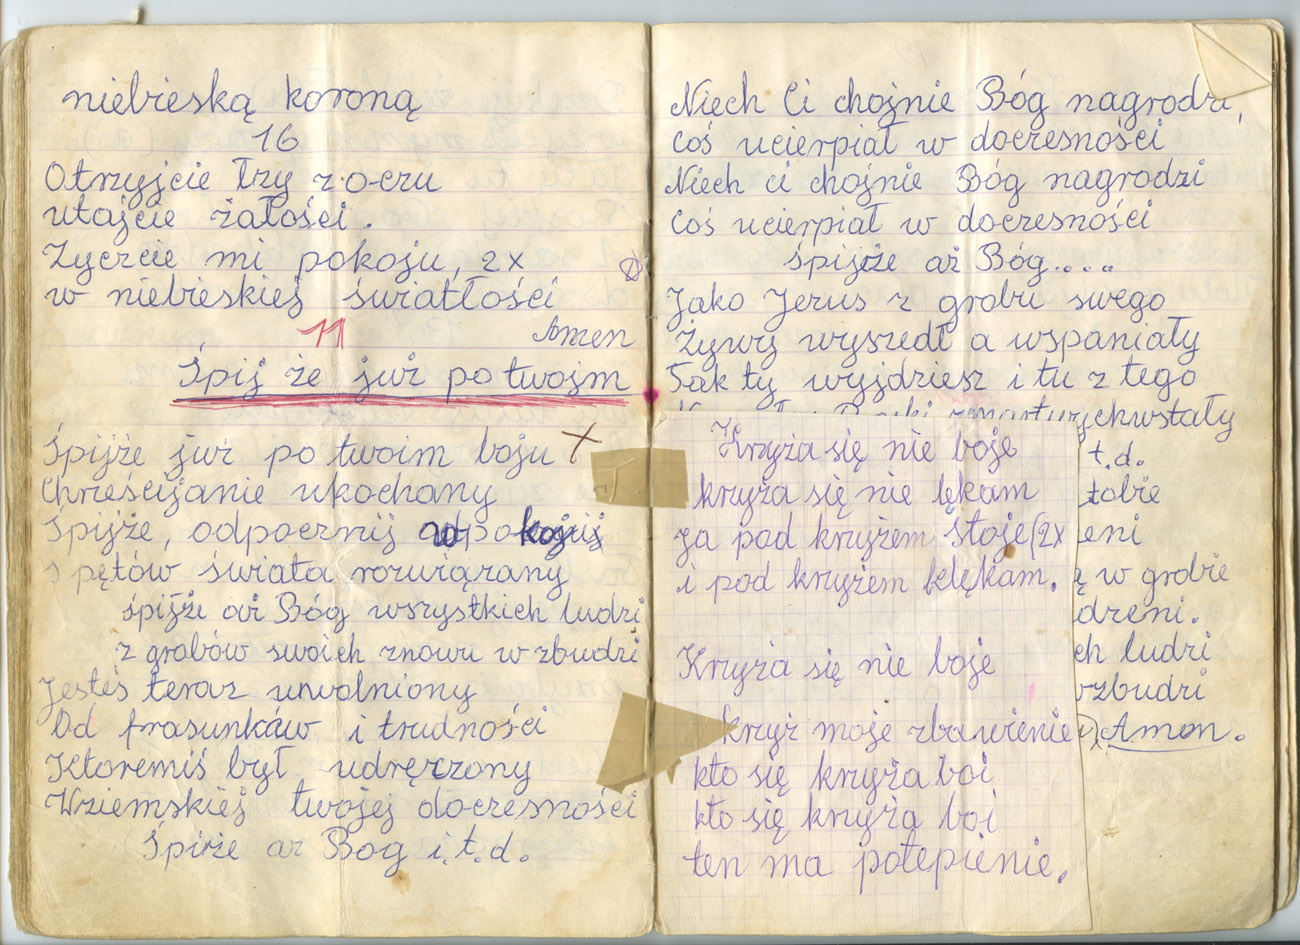 niebieską koroną
16
Otrzyjcie łzy z oczu
utajcie żałości.
Życzcie mi pokoju, 2x
w niebieskiej światłości
Amen
11
Śpij że już po twojm
Śpijże już po twoim boju x
Chrześcijanie ukochany
Śpijże, odpocznij
s pętów świata rozwiązany
śpijże aż Bóg wszystkich ludzi
z grobów swoich znowu wzbudzi
Jesteś teraz uwolniony
Od frasunków i trudności
Któremiś był udręczony
Wziemskiej twojej doczesności
Śpiże aż Bog i.t.d.
Niech Ci chojnie Bóg nagrodzi,
coś ucierpiał w doczesności
Niech ci chojnie Bóg nagrodzi
coś ucierpiał w doczesności
śpijże aż Bóg....
Jako Jezus z grobu swego
Żywy wyszedł a wspaniały
Tak ty wyjdziesz i tu z tego
zmartwychwstały
t.d.
tobie
eni
ą w grobie
dzeni.
ch ludzi
wzbudzi
Amen.
Krzyża się nie boje
krzyża się nie lękam
ja pod krzyżem stoje (2x
i pod krzyżem klękam.
Krzyża się nie boje
krzyż moje zbawienie
kto się krzyża boi
kto się krzyża boi
ten ma potępienie.